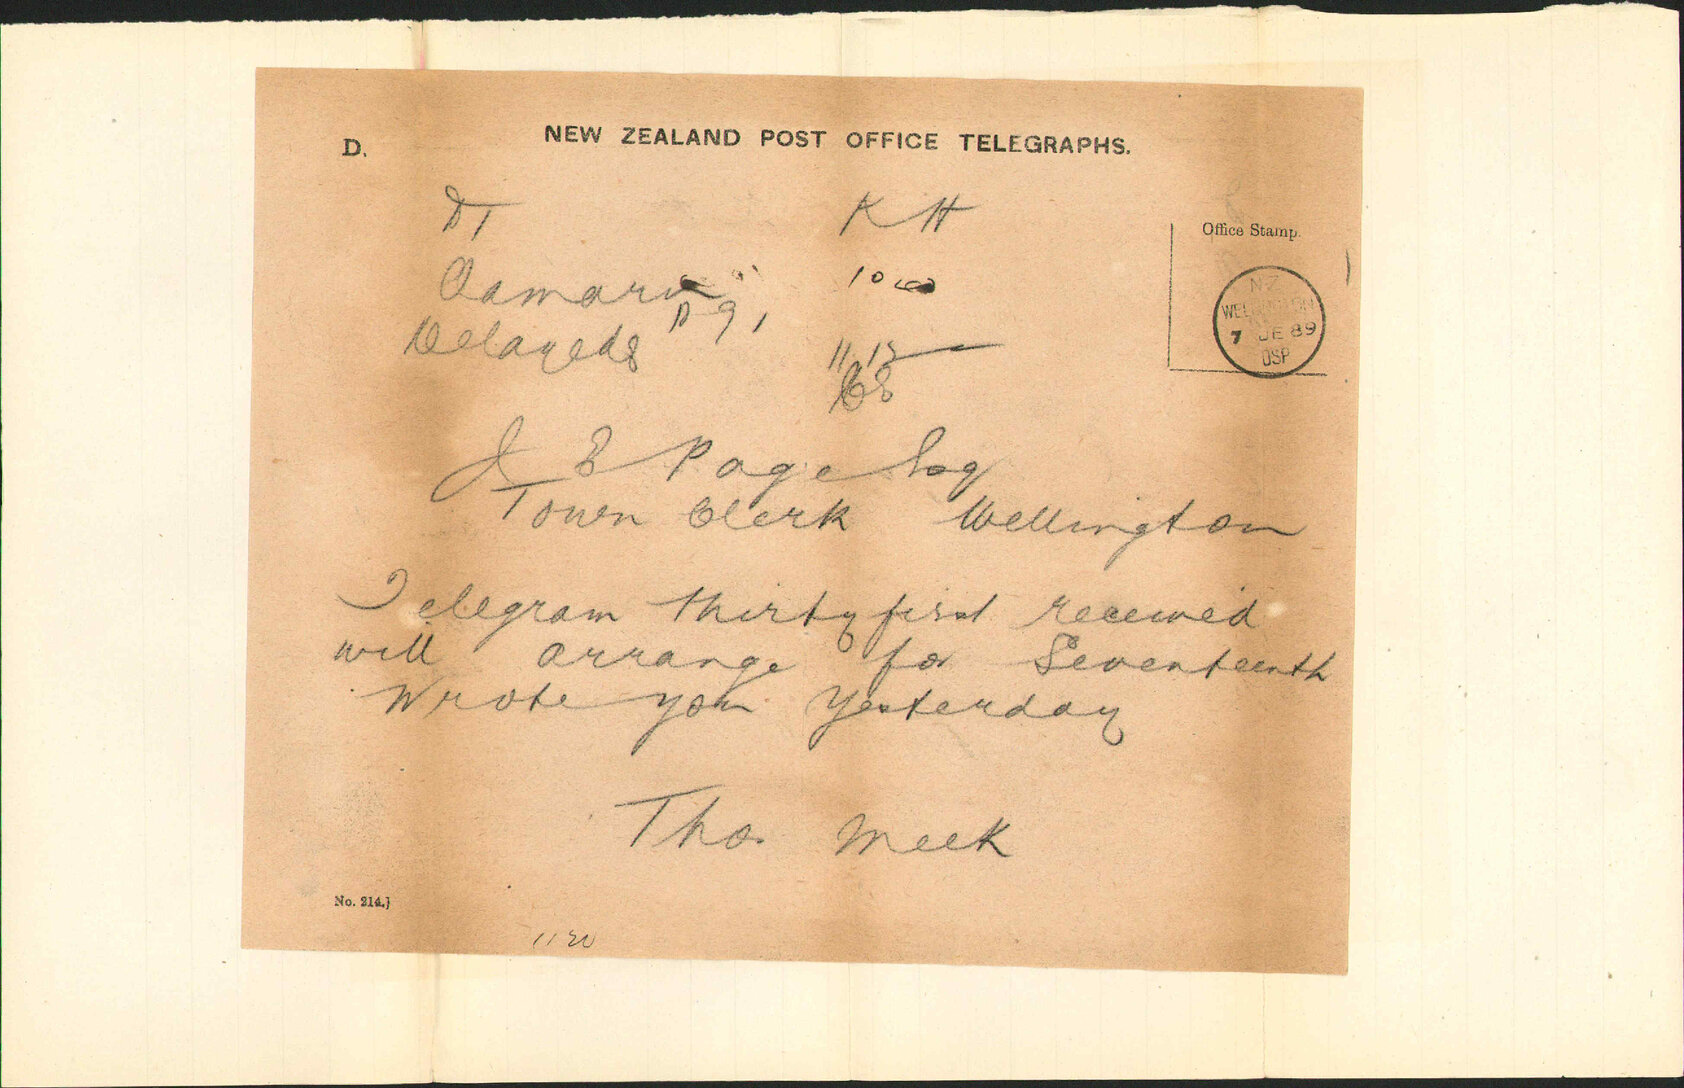 D.
NEW ZEALAND POST OFFICE TELEGRAPHS.
DT KH
Oamaru 10
Delayed
11.12
Office Stamp.
N.Z.
WELLINGTON
7 JE 89
J E Page Esq
Town Clerk Wellington
Telegram thirty first received
will arrange for Seventeenth
Wrote you Yesterday
Thos Meek
No. 214.}
1120